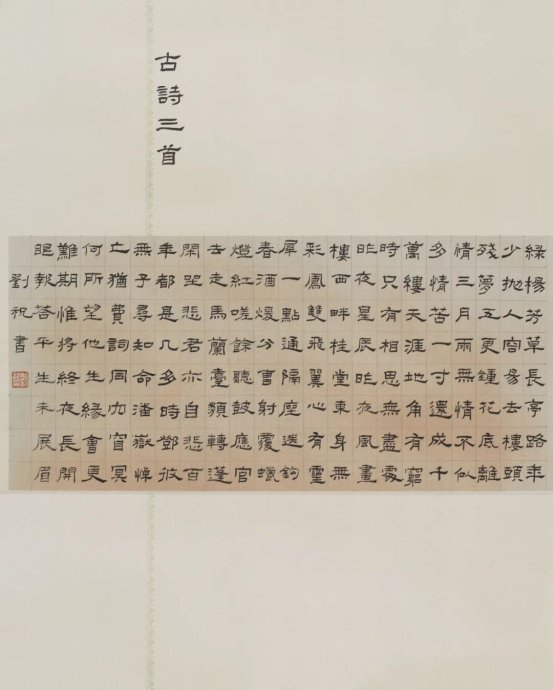 古詩三首
綠楊芳草長亭路年
少抛人容易去樓頭
殘夢五更鍾花底離
情三月雨無情不似
多情苦一寸還成千
萬縷天涯地角有窮
時只有相思無盡處
昨夜星辰昨夜風畫
樓西畔桂堂東身無
彩鳳雙飛翼心有靈
犀一點通隔座送鈎
春酒煖分曹射覆蠟
燈紅嗟餘聽鼓應官
去走馬蘭臺類轉蓬
閑坐悲君亦自悲百
年都是几多時鄧攸
無子尋知命潘嶽悼
亡猶費詞同穴窅冥
何所望他生緣會更
難期惟將終夜長開
眼報答平生未展眉
劉祝書